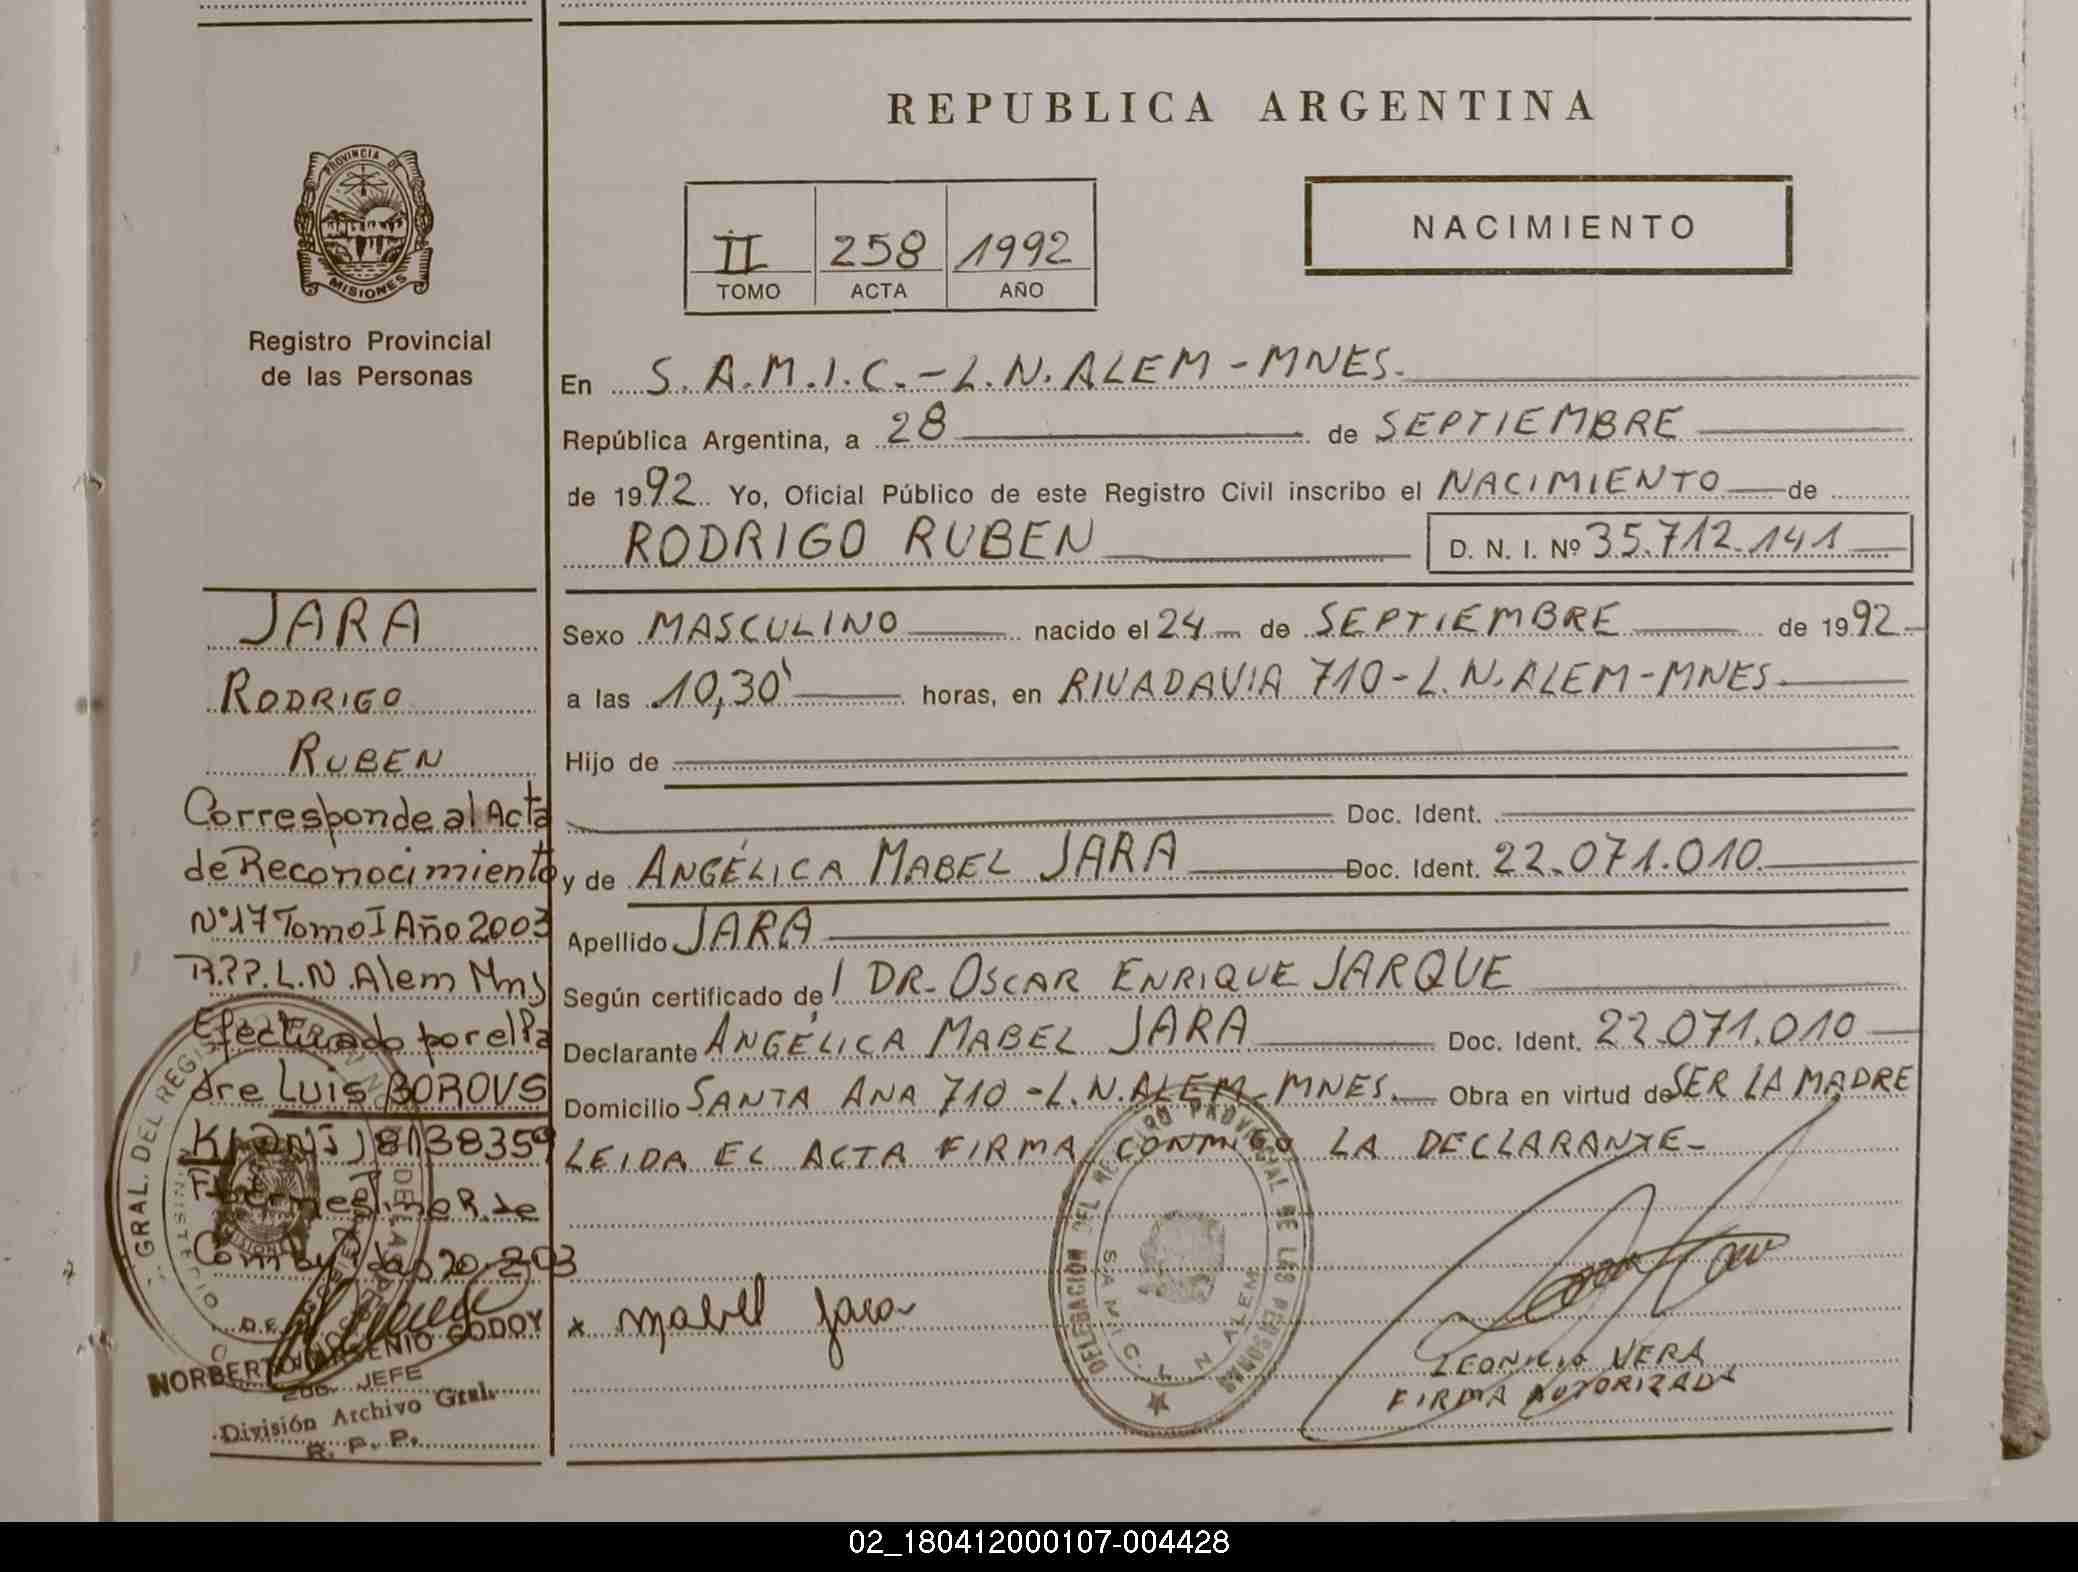 REPUBLICA ARGENTINA
PROVINCIA DE
MISIONES
Registro Provincial
de las Personas
II 258 1992
TOMO ACTA AÑO
NACIMIENTO
En S.A.M.I.C.-L.N.ALEM-MNES.
República Argentina, a 28 de SEPTIEMBRE
de 1992 Yo, Oficial Público de este Registro Civil inscribo el NACIMIENTO de
RODRIGO RUBEN D. N. I. Nº 35.712.141
Sexo MASCULINO nacido el 24 de SEPTIEMBRE de 1992
a las 10,30' horas, en RIVADAVIA 710-L.N.ALEM-MNES.
Hijo de
Doc. Ident.
y de ANGÉLICA MABEL JARA Doc. Ident. 22.071.010
Apellido JARA
Según certificado de DR. OSCAR ENRIQUE JARQUE
Declarante ANGÉLICA MABEL JARA Doc. Ident. 22.071.010
Domicilio SANTA ANA 710-L.N.ALEM-MNES. Obra en virtud de SER LA MADRE
LEIDA EL ACTA FIRMA CONMIGO LA DECLARANTE-
x Mabel Jara
DELEGACION DEL REGISTRO PROVINCIAL DE LAS PERSONAS
S.A.M.I.C. L N ALEM
LEONICIO VERA
FIRMA AUTORIZADA
JARA
RODRIGO
RUBEN
Corresponde al Acta
de Reconocimiento
Nº17 Tomo I Año 2003
R.P.P. L.N.Alem Mns
Efectuado por el Pa
dre Luis BOROVS
KI DNI 18138359
R. de
20-2-03
GRAL. DEL REGIS
NORBERTO ARSENIO GODOY
JEFE
División Archivo Gral.
R. P. P.
02_180412000107-004428